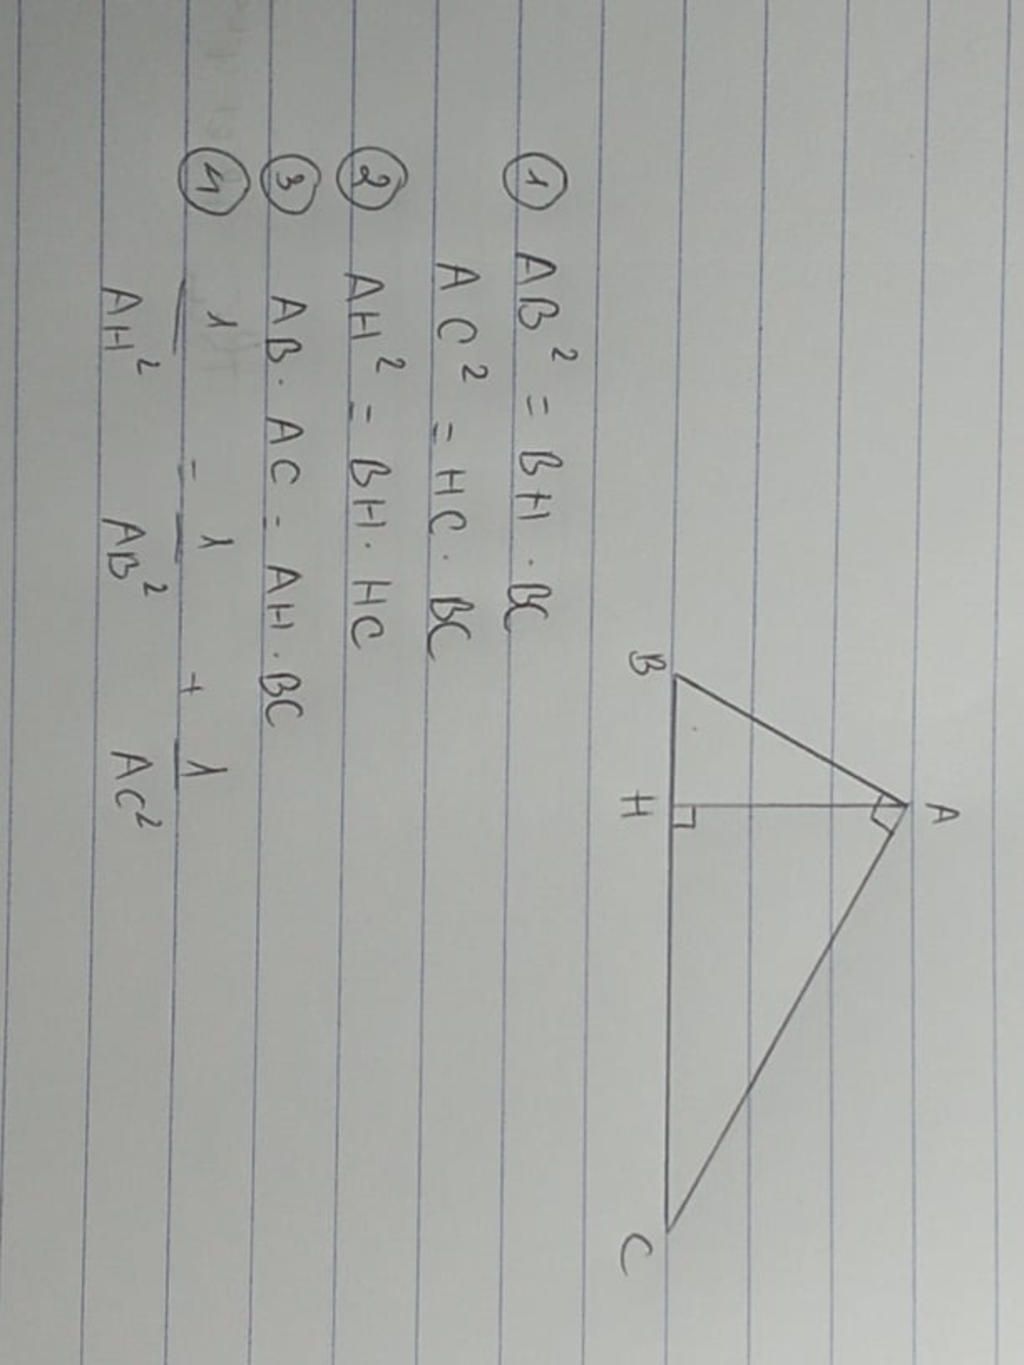 A
B H C
① AB² = BH . BC
AC² = HC . BC
② AH² = BH . HC
③ AB . AC = AH . BC
④ 1/AH² = 1/AB² + 1/AC²